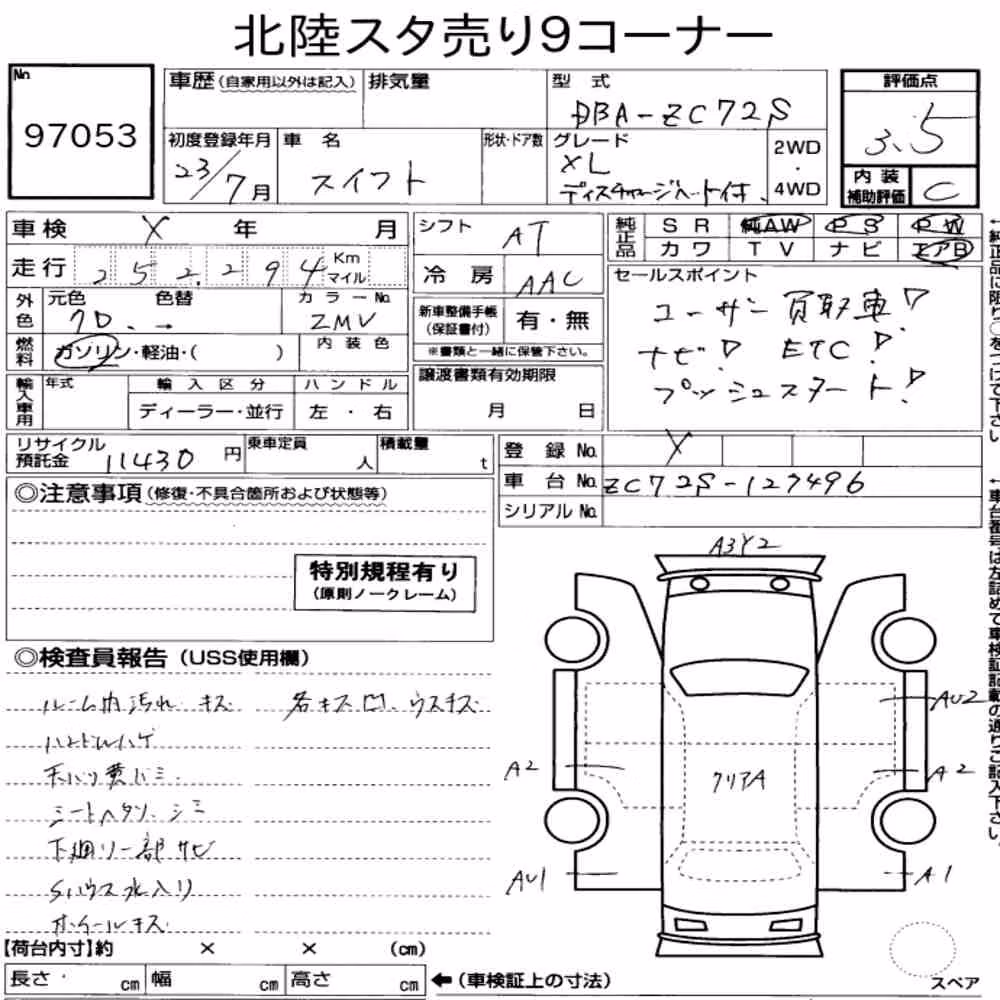 北陸スタ売り9コーナー
No.
97053
車歴(自家用以外は記入)
排気量
型式
DBA-ZC72S
評価点
3.5
初度登録年月
23/7月
車名
スイフト
形状・ドア数
グレード
XL
ディスチャージヘッドライト付
2WD
・
4WD
内装
補助評価
C
車検 X 年 月
シフト
AT
純正品
SR 純AW PS PW
カワ TV ナビ エアB
走行 252,294 Km
マイル
冷房
AAC
セールスポイント
ユーザー買取車!
ナビ! ETC!
プッシュスタート!
外色
元色 色替
カラーNo.
ZMV
新車整備手帳
(保証書付)
有・無
※書類と一緒に保管下さい。
燃料
ガソリン・軽油・( )
内装色
輸入車用
年式
輸入区分
ディーラー・並行
ハンドル
左・右
譲渡書類有効期限
月 日
リサイクル
預託金
11430円
乗車定員
人
積載量
t
登録No.
X
車台No.
ZC72S-127496
シリアルNo.
◎注意事項(修復・不具合箇所および状態等)
特別規程有り
(原則ノークレーム)
◎検査員報告(USS使用欄)
ルーム内汚れ キズ
各キズ凹、ウスキズ
ハンドルハゲ
天バリ黄バミ
シートヘタリ、シミ
下廻り一部サビ
Sハウス水入り
ホイールキズ
A3Y2
AU2
A2
A2
クリアA
AU1
A1
スペア
【荷台内寸】約 × × (cm)
長さ・ cm 幅 cm 高さ cm
←(車検証上の寸法)
←純正品に限り○をつけて下さい
←車台番号は左詰めで車検証記載の通りご記入下さい。